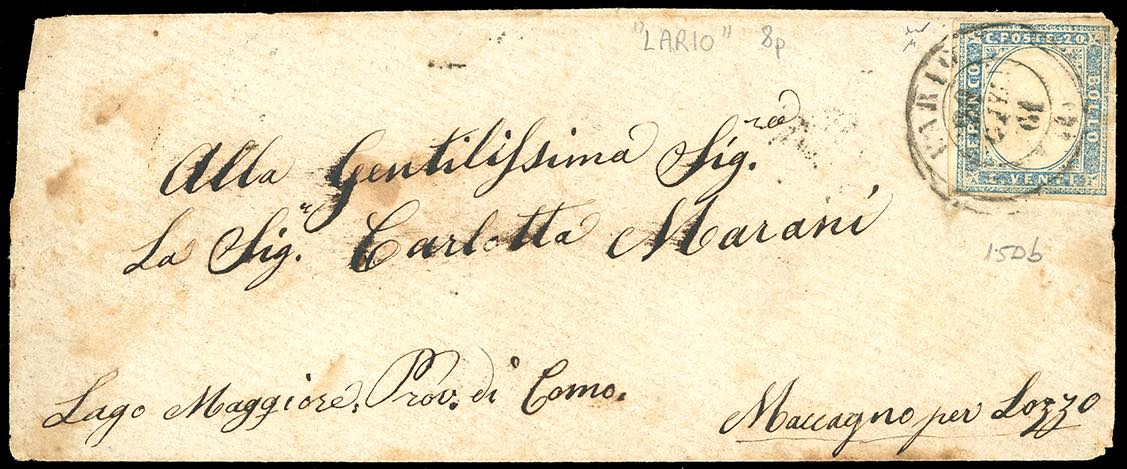 "LARIO" 8p
C. POSTE 20
FRANCO
BOLLO
C. VENTI
LARIO
19
Alla Gentilissima Sig.ra
La Sig.ra Carlotta Marani
15Db
Lago Maggiore. Prov. di Como.
Maccagno per Lozzo